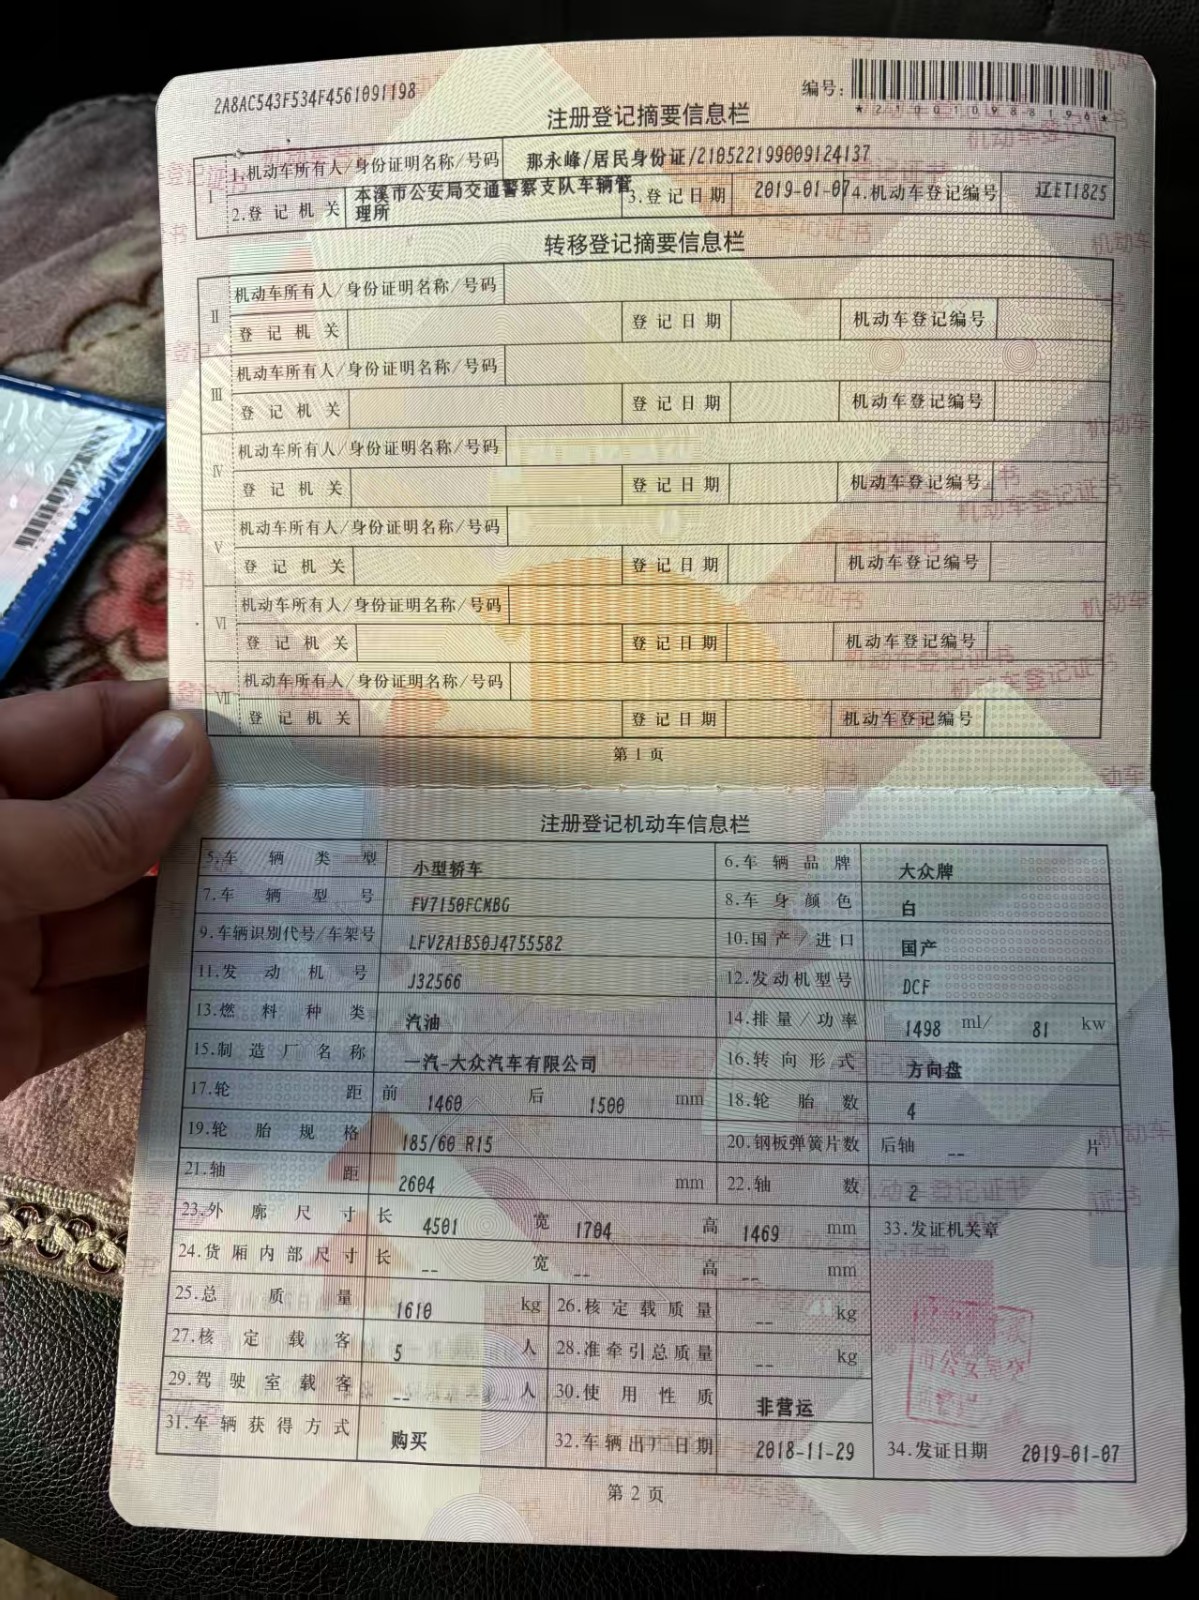 2A8AC543F534F4561091198
编号:
*210010988196*
注册登记摘要信息栏
Ⅰ 1.机动车所有人/身份证明名称/号码 那永峰/居民身份证/210522199009124137
2.登记机关 本溪市公安局交通警察支队车辆管理所 3.登记日期 2019-01-07 4.机动车登记编号 辽ET1825
转移登记摘要信息栏
Ⅱ 机动车所有人/身份证明名称/号码
登记机关 登记日期 机动车登记编号
Ⅲ 机动车所有人/身份证明名称/号码
登记机关 登记日期 机动车登记编号
Ⅳ 机动车所有人/身份证明名称/号码
登记机关 登记日期 机动车登记编号
Ⅴ 机动车所有人/身份证明名称/号码
登记机关 登记日期 机动车登记编号
Ⅵ 机动车所有人/身份证明名称/号码
登记机关 登记日期 机动车登记编号
Ⅶ 机动车所有人/身份证明名称/号码
登记机关 登记日期 机动车登记编号
第1页
注册登记机动车信息栏
5.车辆类型 小型轿车 6.车辆品牌 大众牌
7.车辆型号 FV7150FCMBG 8.车身颜色 白
9.车辆识别代号/车架号 LFV2A1BS0J4755582 10.国产/进口 国产
11.发动机号 J32566 12.发动机型号 DCF
13.燃料种类 汽油 14.排量/功率 1498 ml/ 81 kw
15.制造厂名称 一汽-大众汽车有限公司 16.转向形式 方向盘
17.轮距 前 1460 后 1500 mm 18.轮胎数 4
19.轮胎规格 185/60 R15 20.钢板弹簧片数 后轴 -- 片
21.轴距 2604 mm 22.轴数 2
23.外廓尺寸 长 4501 宽 1704 高 1469 mm 33.发证机关章
24.货厢内部尺寸 长 -- 宽 -- 高 -- mm
25.总质量 1610 kg 26.核定载质量 -- kg
27.核定载客 5 人 28.准牵引总质量 -- kg
29.驾驶室载客 -- 人 30.使用性质 非营运
31.车辆获得方式 购买 32.车辆出厂日期 2018-11-29 34.发证日期 2019-01-07
第2页